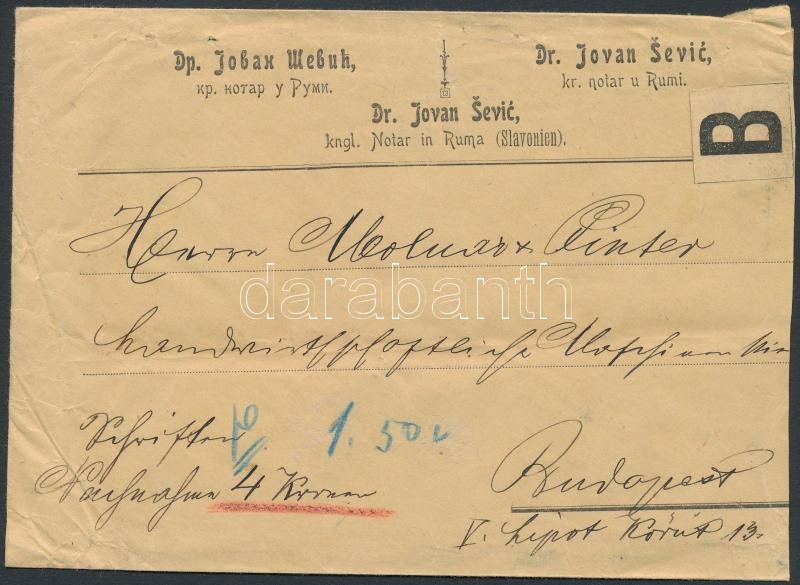 Др. Јован Шевић,
кр. нотар у Руми.
Dr. Jovan Šević,
kr. notar u Rumi.
Dr. Jovan Šević,
kngl. Notar in Ruma (Slavonien).
B
Herrn Molnar & Pinter
darabanth
landwirthschaftliche Maschinen
Schriften
1.50
Nachnahme 4 Kronen
Budapest
V. Lipot Körút 13.